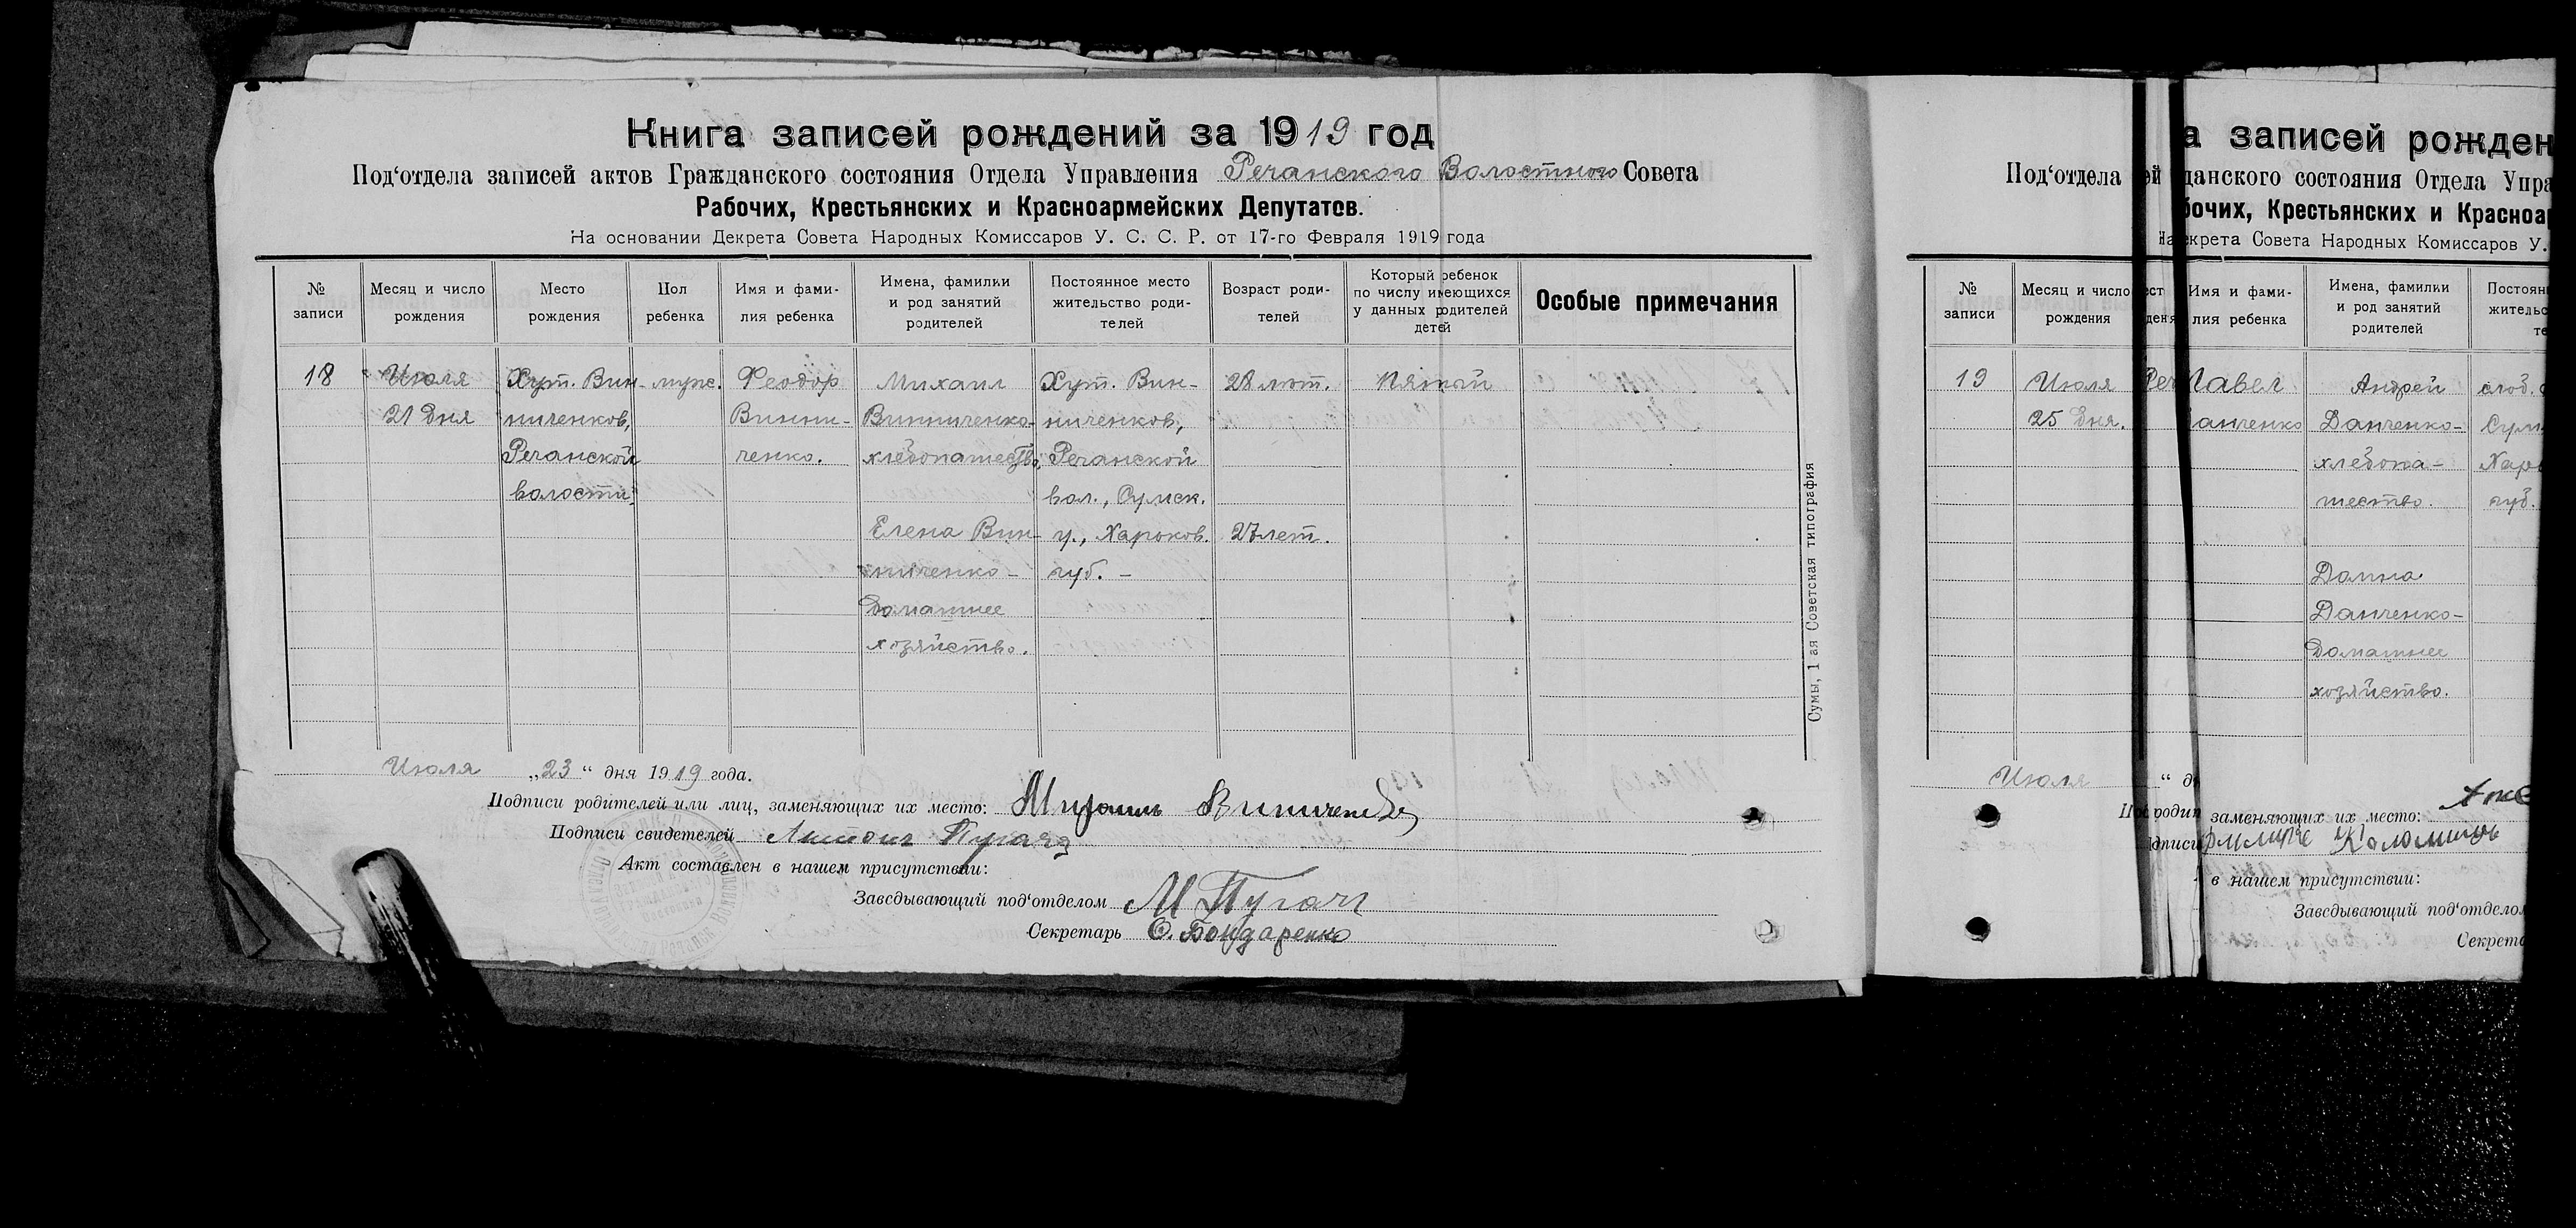 Книга записей рождений за 1919 год
Под‘отдела записей актов Гражданского состояния Отдела Управления Речанского Волостного Совета
Рабочих, Крестьянских и Красноармейских Депутатов.
На основании Декрета Совета Народных Комиссаров У. С. С. Р. от 17-го Февраля 1919 года
№ записи
Месяц и число рождения
Место рождения
Пол ребенка
Имя и фамилия ребенка
Имена, фамилки и род занятий родителей
Постоянное место жительство родителей
Возраст родителей
Который ребенок по числу имеющихся у данных родителей детей
Особые примечания
18
Июля
21 дня
Хут. Вин-
ниченков,
Речанской
волости.
муж.
Феодор
Винни-
ченко.
Михаил
Винниченко-
хлебопашество,
Елена Вин-
ниченко-
домашнее
хозяйство.
Хут. Вин-
ниченков,
Речанской
вол., Сумск.
у., Харьков.
губ. -
28 лет.
27 лет.
пятый
Июля „23“ дня 1919 года.
Подписи родителей или лиц, заменяющих их место: Михаил
Подписи свидетелей
Акт составлен в нашем присутствии:
Заведывающий под‘отделом М Пугач
Секретарь С. Бондаренко
Сумы, 1 ая Советская типография
а записей рожден
Под‘отдела ей данского состояния Отдела Упра
бочих, Крестьянских и Красноар
На екрета Совета Народных Комиссаров У.
№ записи
Месяц и число рождения
Имя и фами-
лия ребенка
Имена, фамилки и род занятий родителей
19
Июля
25 дня.
Павел
анченко
Андрей
Данченко-
хлебопа-
шество.
Домна
Данченко-
домашнее
хозяйство.
слоб.
Сум
Харь
губ.
Июля
заменяющих их место:
в нашем присутствии:
Заведывающий под‘отдело
Секрета